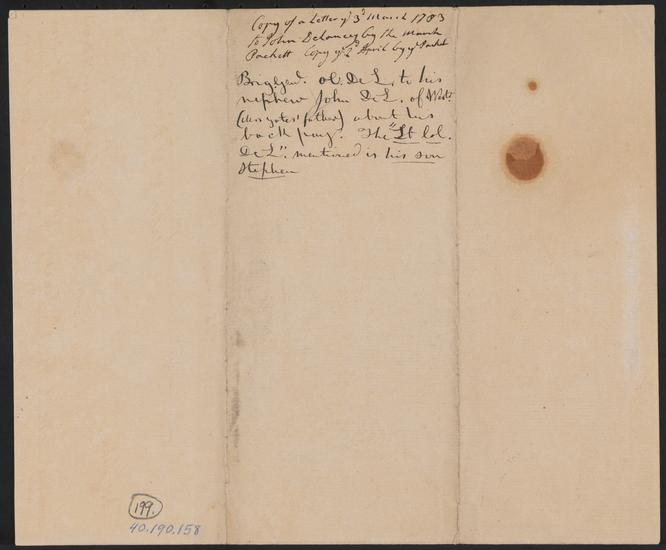 Copy of a Letter yᵉ 3ᵈ March 1783
to John Delancey by the March
Packett Copy yᵉ 2ᵈ April by yᵉ Packet
Brig. Genl. Ol. De L. to his
nephew John De L. of West.
(Mrs Yates' father) about his
back pay. The "Lt Col.
De L". mentioned is his son
Stephen
199.
40.190.158